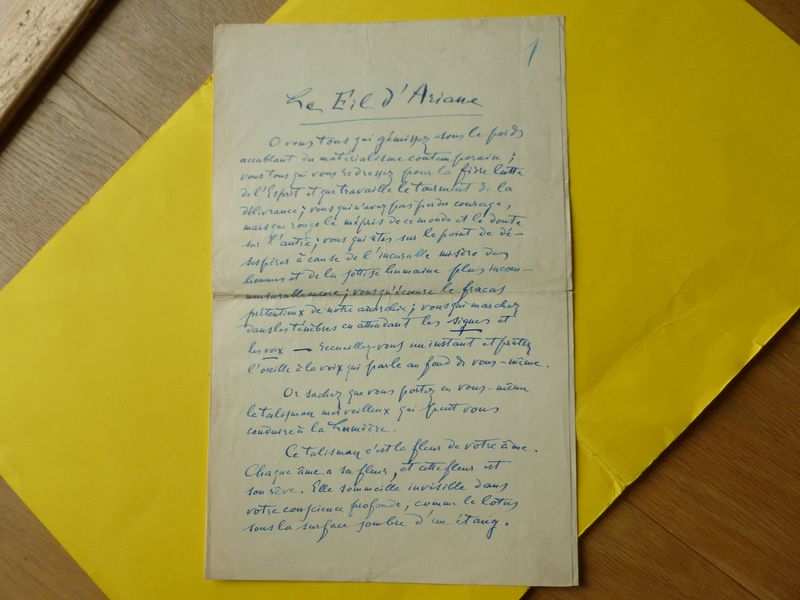 1
Le Fil d'Ariane
O vous tous qui gémissez sous le poids
accablant du matérialisme contemporain ;
vous tous qui vous redressez pour la fière lutte
de l'Esprit et que travaille le tourment de la
délivrance ; vous qui n'avez pas perdu courage,
mais que ronge le mépris de ce monde et le doute
sur l'autre ; vous qui êtes sur le point de dé-
sespérer à cause de l'incurable misère des
hommes et de la sottise humaine plus incom-
mensurable encore ; vous qu'écœure le fracas
prétentieux de notre anarchie ; vous qui marchez
dans les ténèbres en attendant les signes et
les voix — recueillez-vous un instant et prêtez
l'oreille à la voix qui parle au fond de vous-même.
Or sachez que vous portez en vous-même
le talisman merveilleux qui peut vous
conduire à la Lumière.
Ce talisman c'est la fleur de votre âme.
Chaque âme a sa fleur, et cette fleur est
son rêve. Elle sommeille invisible dans
votre conscience profonde, comme le lotus
sous la surface sombre d'un étang.